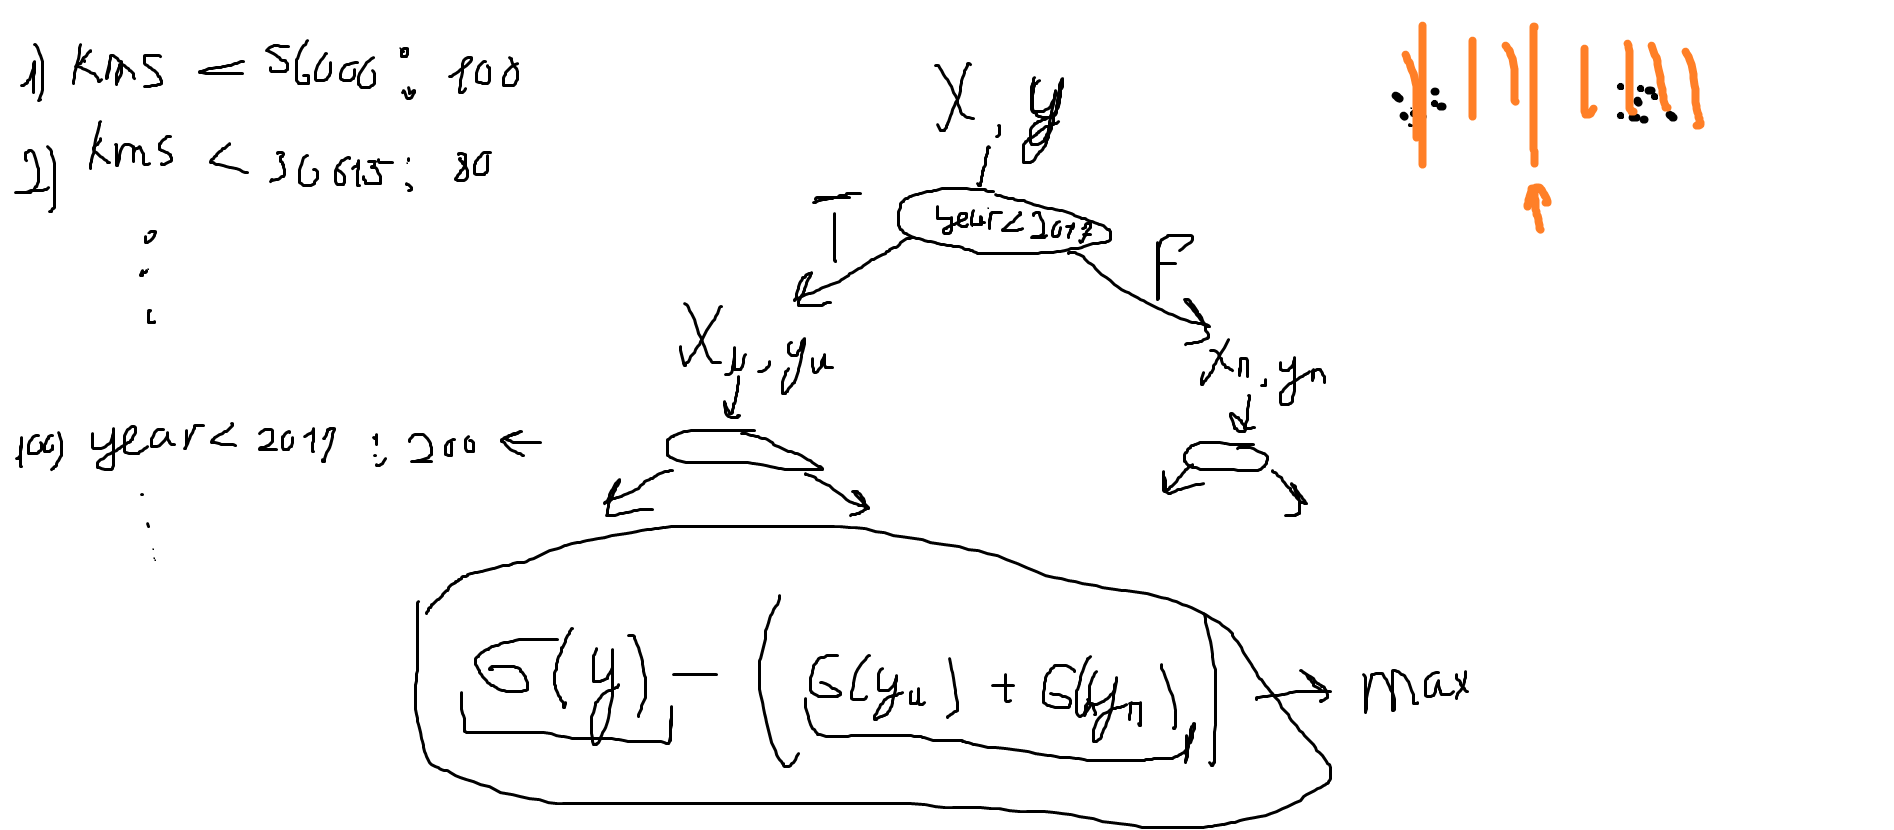 1) kms < 56000 : 100
2) kms < 30615 : 80
100) year < 2017 : 200 ←
X, y
year < 2017
T
F
Xл, yл
xп, yп
σ(y) - (σ(yл) + σ(yп)) → max